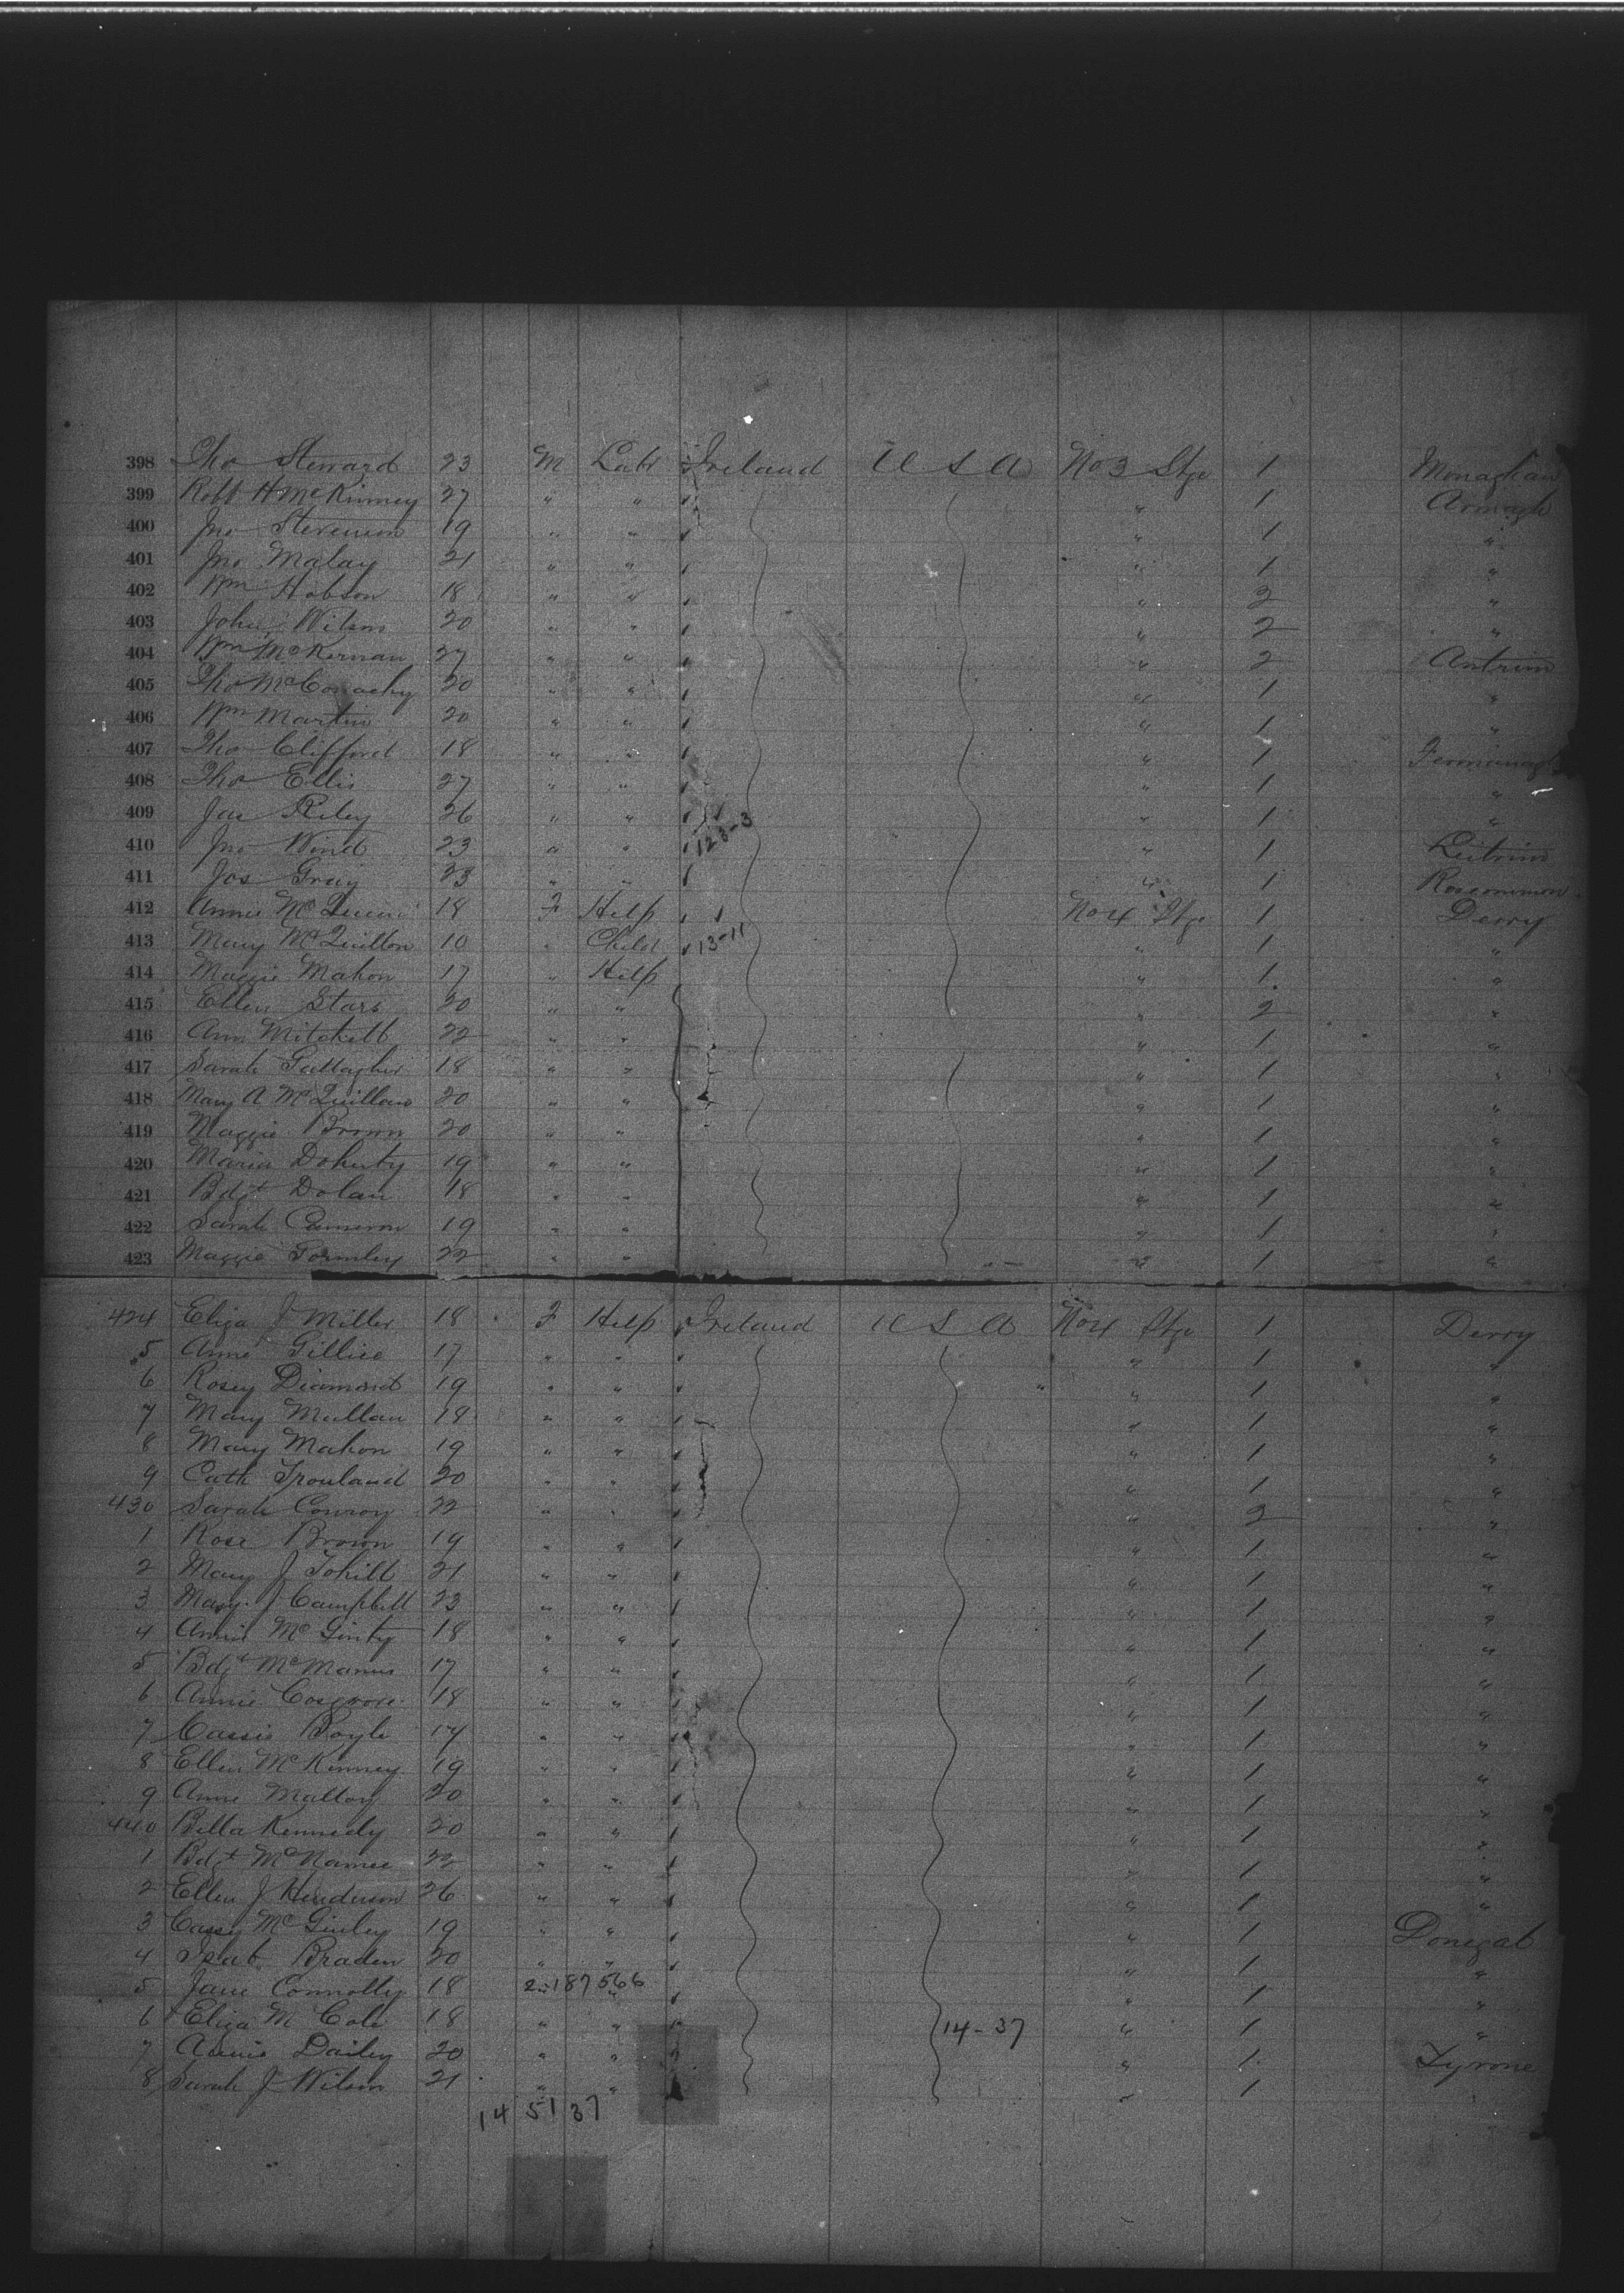 398 Tho Steward 23 M Labr Ireland U S A No 3 Stge 1 Monaghan
399 Robt H McKinney 27 " " " " 1 Armagh
400 Jno Stevenson 19 " " " " 1 "
401 Jno Malay 21 " " " " 1 "
402 Wm Hobson 18 " " " " 2 "
403 John Wilson 20 " " " " 2 "
404 Wm McKernan 27 " " " " 2 Antrim
405 Tho McConachy 20 " " " " 1 "
406 Wm Martin 20 " " " " 1 "
407 Tho Clifford 18 " " " " 1 Fermanagh
408 Tho Ellis 27 " " " " 1 "
409 Jas Riley 26 " " " " 1 "
123-3
410 Jno Wind 23 " " " " 1 Leitrim
411 Jos Gray 23 " " " " 1 Roscommon
412 Annie Mc 18 F Help " No 4 Stge 1 Derry
413 Mary McQuillon 10 " Child " 13-11 " 1 "
414 Maggie Mahon 17 " Help " 1 "
415 Ellen Stars 20 " " " 2 "
416 Ann Mitchell 22 " " " 1 "
417 Sarah Gallagher 18 " " " 1 "
418 Mary A McQuillan 20 " " " 1 "
419 Maggie Brown 20 " " " 1 "
420 Maria Doherty 19 " " " 1 "
421 Bdgt Dolan 18 " " " 1 "
422 Sarah Cameron 19 " " " 1 "
423 Maggie Gormley 22 " " " 1 "
424 Eliza J Miller 18 F Help Ireland U S A No 4 Stge 1 Derry
5 Anne Gillice 17 " " " " 1 "
6 Rosey Diamond 19 " " " " 1 "
7 Mary Mullan 18 " " " " 1 "
8 Mary Mahon 19 " " " " 1 "
9 Cath 20 " " " " 1 "
430 Sarah Conroy 22 " " " " 2 "
1 Rose Brown 19 " " " " 1 "
2 Mary J Tohill 21 " " " " 1 "
3 Mary J Campbell 23 " " " " 1 "
4 Annie McGinty 18 " " " " 1 "
5 Bdgt McManus 17 " " " " 1 "
6 Annie Cosgrove 18 " " " " 1 "
7 Cassie Boyle 17 " " " " 1 "
8 Ellen McKinney 19 " " " " 1 "
9 Anne Malloy 20 " " " " 1 "
440 Bella Kennedy 20 " " " " 1 "
1 Bdgt McNamee 22 " " " " 1 "
2 Ellen J Henderson 26 " " " " 1 "
3 Cassy McGinley 19 " " " " 1 Donegal
4 Isab Braden 20 " " " " 1 "
5 Jane Connolly 18 2-187566 " " 1 "
6 Eliza M Cole 18 " " " 14-37 " 1 "
7 Annie Dailey 20 " " " " 1 Tyrone
8 Sarah J Wilson 21 " " " " 1 "
14 51 37